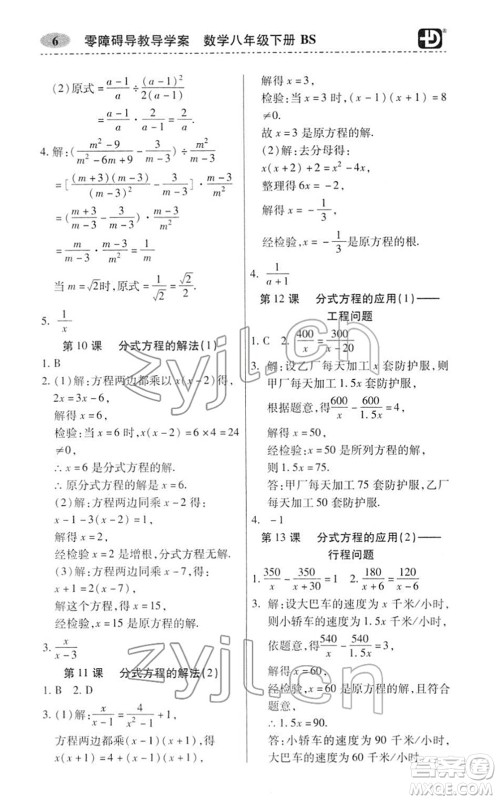 6 零障碍导教导学案 数学八年级下册 BS
(2)原式=(a-1)/a÷(a-1)/a²
=(a-1)/a·a²/(a-1)=a.
4.解:((m²-9)/(m²-6m+9)-3/(m-3))·1/m²
=[(m+3)(m-3)/(m-3)²-3/(m-3)]·1/m²
=((m+3)/(m-3)-3/(m-3))·1/m²
=m/(m-3)·(m-3)/m²=1/m.
当m=√2时,原式=√2/2.
5. 1/x
第10课 分式方程的解法(1)
1. B
2. (1)解:方程两边都乘以x(x-2)得:
2x=3x-6,
解得x=6,
检验:当x=6时,x(x-2)=6×4=24
≠0.
∴x=6是分式方程的解.
∴原分式方程的解为x=6.
(2)解:方程两边同乘x-2得:
x-1-3(x-2)=1,
解得x=2,
经检验x=2是增根,分式方程无解.
(3)解:方程两边同乘x-5得:
解这个方程得x=15,
经检验,x=15是原方程的解.
第11课 分式方程的解法(2)
1. B 2. D
方程两边都乘以(x+1)(x-1)得
x(x+1)=4+(x+1)(x-1),
解得x=3,
检验:当x=3时,(x-1)(x+1)=8
≠0.
故x=3是原方程的解.
(2)解:去分母得:
x(x+2)+2(x+2)+2=x²-4,
整理得6x=-2x-10... 
解得x=-1/3
经检验,x=-1/3是原方程的根.
4. 1/(a+1)
第12课 分式方程的应用(1)——
工程问题
1. C 2. 400/x=300/(x-20)
3. 解:设乙厂每天加工x套防护服,则
甲厂每天加工1.5x套防护服,
根据题意,得600/x-600/1.5x=4,
解得x=50,
经检验x=50是所列方程的解,
则1.5x=75.
答:甲厂每天加工75套防护服,乙厂
每天加工50套防护服.
4. -1
第13课 分式方程的应用(2)——
行程问题
1. 350/x-350/(x+30)=1 2. 180/(x+6)=120/(x-6)
3. 解:设大巴车的速度为x千米/小时,
则小轿车的速度为1.5x千米/小时,
解得x=60,
经检验,x=60是原方程的解,且符合
题意,
则1.5x=90.
答:小轿车的速度为90千米/小时,
大巴车的速度为60千米/小时.
zyjl.cn
zyjl.cn